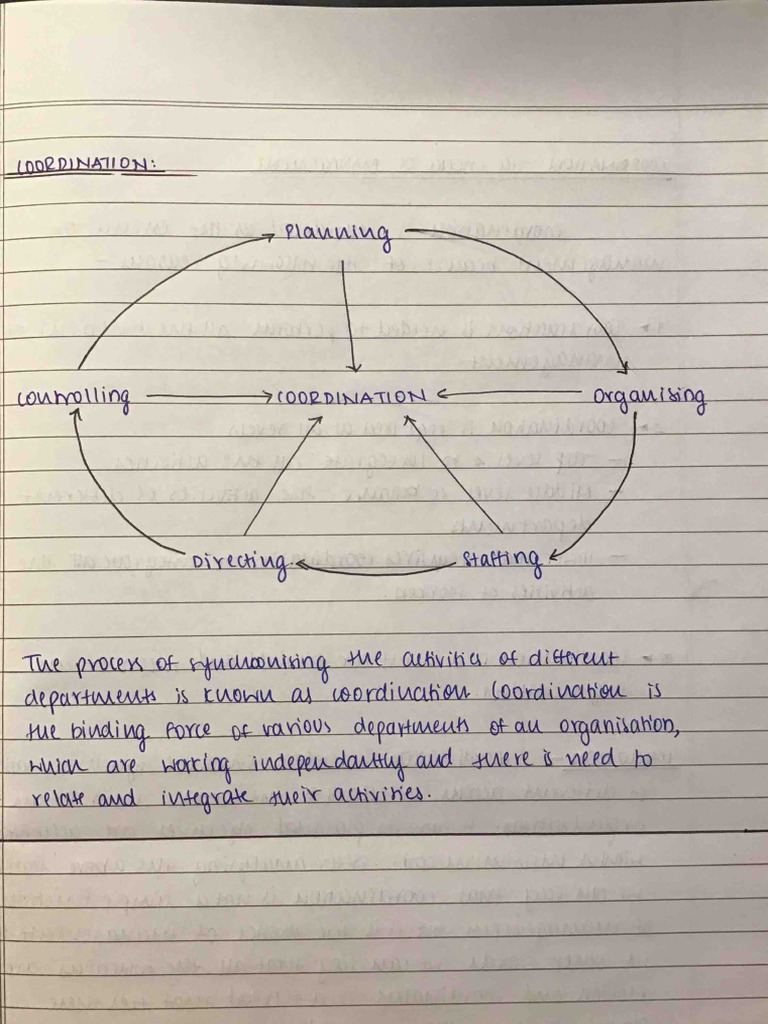 COORDINATION:
Planning
Controlling
COORDINATION
Organising
Directing
Staffing
The process of synchronising the activities of different
departments is known as coordination Coordination is
the binding force of various departments of an organisation,
which are working independantly and there is need to
relate and integrate their activities.